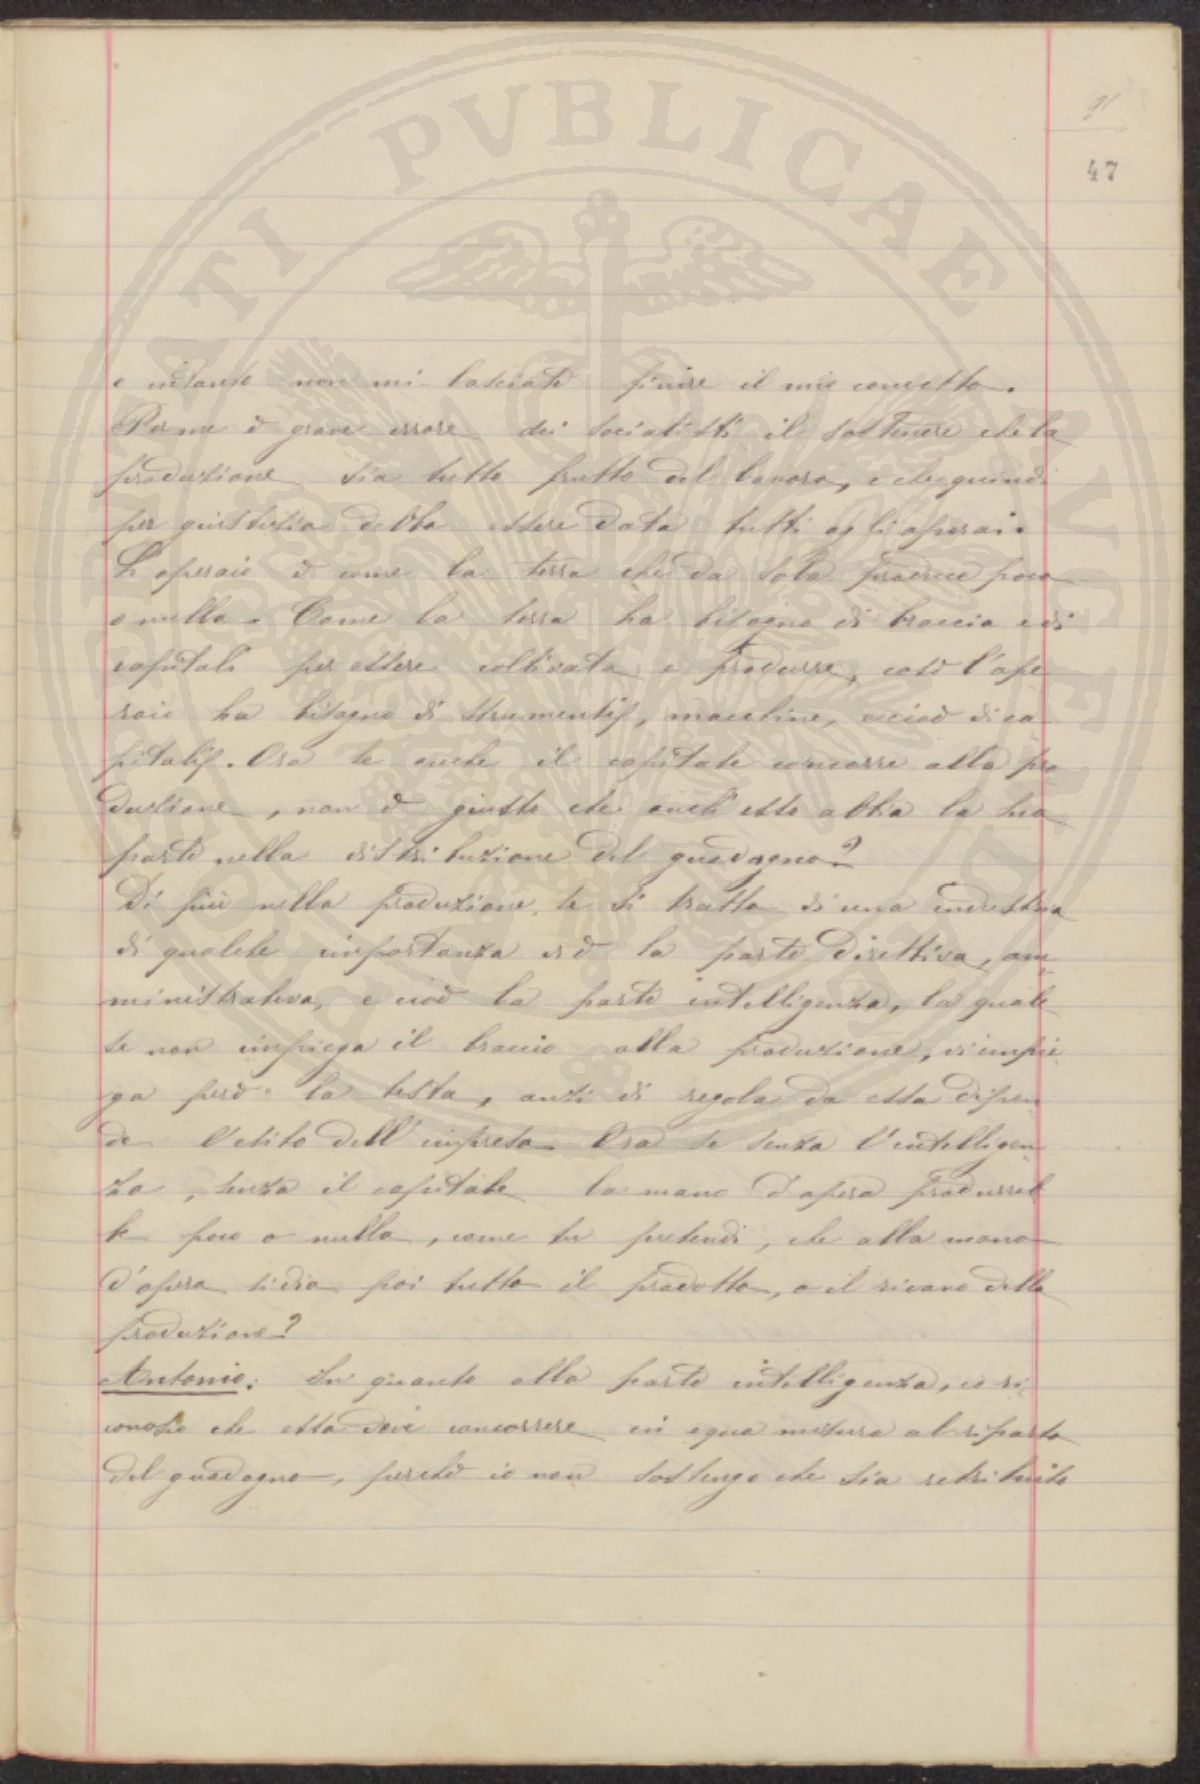 91
47
e intanto non mi lasciate finire il mio concetto.
Per me è grave errore dei socialisti il sostenere che la
produzione sia tutto frutto del lavoro, e che quindi
per giustizia debba essere data tutti agli operai.
L'operaio è come la terra che da sola produce poco
o nulla. Come la terra ha bisogno di braccia e di
capitali per essere coltivata e produrre, così l'ope
raio ha bisogno di strumenti, macchine, ossia di ca
pitali. Ora se anche il capitale concorre alla pro
duzione, non è giusto che anch'esso abbia la sua
parte nella distribuzione del guadagno?
Di più nella produzione, se si tratta di una industria
di qualche importanza vi è la parte direttiva, am
ministrativa, e cioè la parte intelligenza, la quale
se non impiega il braccio alla produzione, vi impie
ga però la testa, anzi di regola da essa dipen
de l'esito dell'impresa. Ora se senza l'intelligen
za, senza il capitale la mano d'opera produrreb
be poco o nulla, come tu pretendi, che alla mano
d'opera si dia poi tutto il prodotto, o il ricavo della
produzione?
Antonio: In quanto alla parte intelligenza, io ri
conosco che essa deve concorrere in equa misura al riparto
del guadagno, perchè io non sostengo che sia retribuito
PVBLICAE